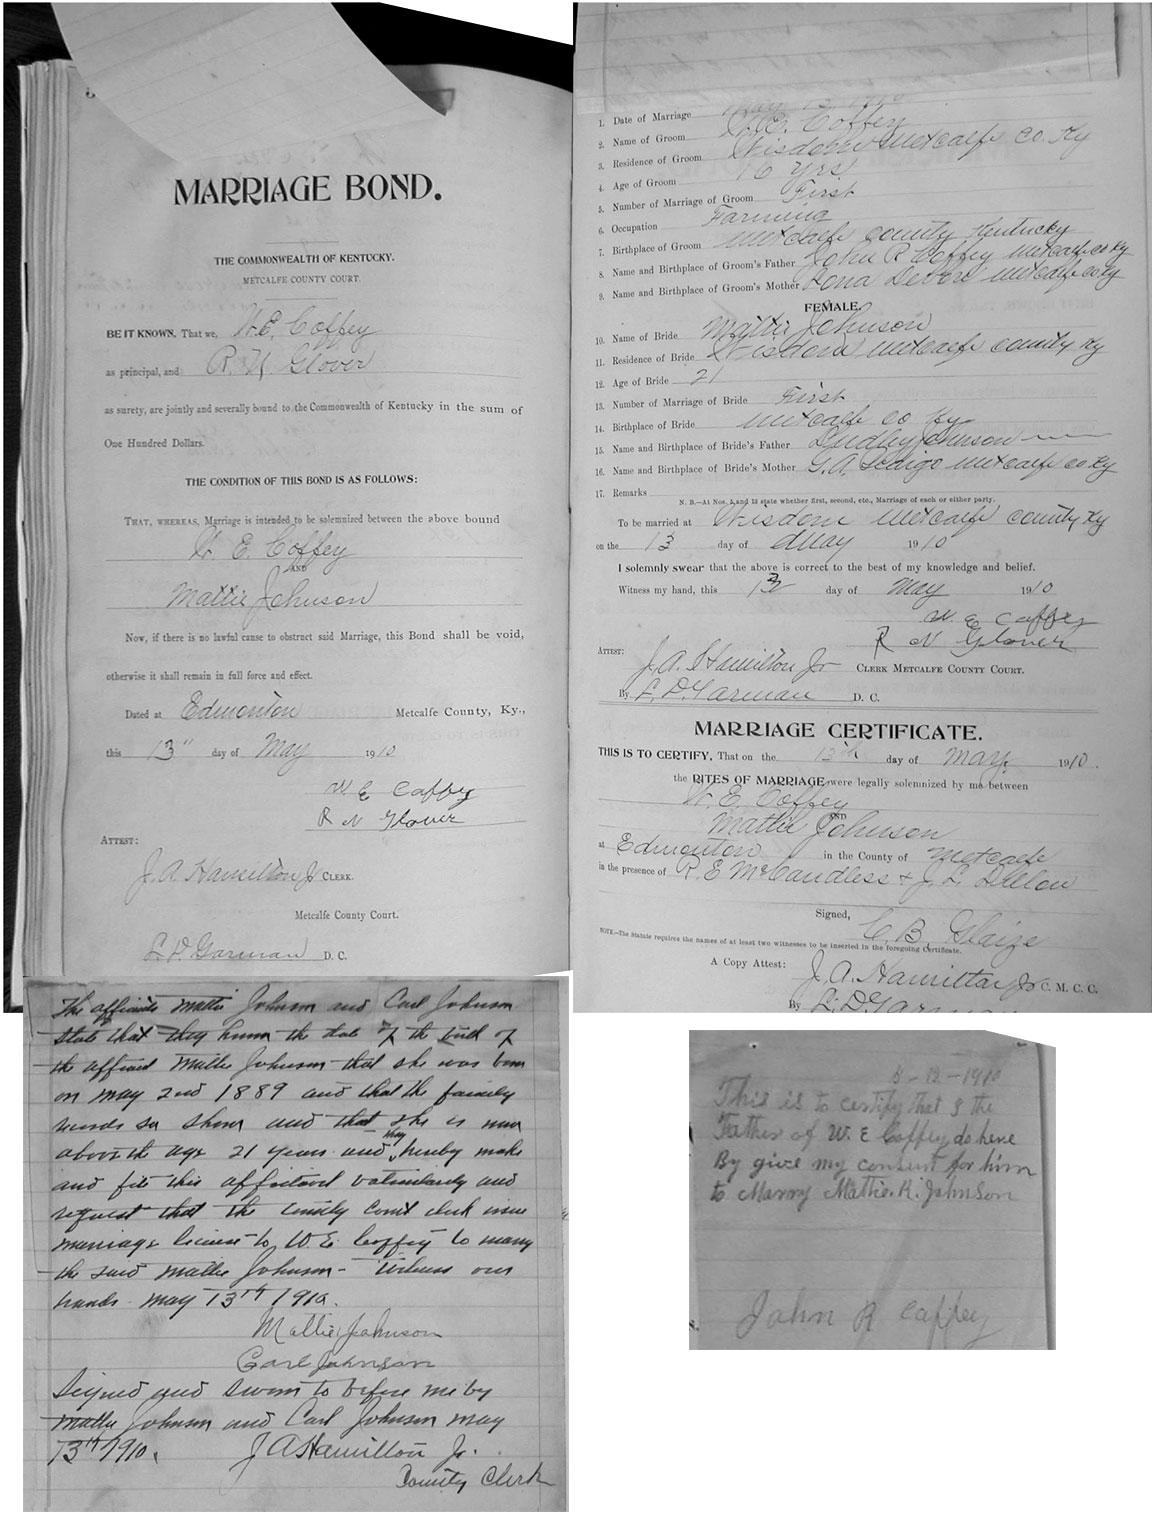 MARRIAGE BOND.
THE COMMONWEALTH OF KENTUCKY.
METCALFE COUNTY COURT.
BE IT KNOWN. That we, W.E. Coffey
as principal, and R. N. Glover
as surety, are jointly and severally bound to the Commonwealth of Kentucky in the sum of
One Hundred Dollars.
THE CONDITION OF THIS BOND IS AS FOLLOWS:
THAT, WHEREAS, Marriage is intended to be solemnized between the above bound
W. E. Coffey
AND
Mattie Johnson
Now, if there is no lawful cause to obstruct said Marriage, this Bond shall be void,
otherwise it shall remain in full force and effect.
Dated at Edmonton Metcalfe County, Ky.,
this 13" day of May 1910
W E Caffey
R N Glover
ATTEST:
J. A. Hamilton Jr CLERK.
Metcalfe County Court.
L. D. Garman D. C.
1. Date of Marriage May 13 1910
2. Name of Groom W.E. Coffey
3. Residence of Groom Wisdom Metcalfe Co. Ky
4. Age of Groom 16 yrs
5. Number of Marriage of Groom First
6. Occupation Farming
7. Birthplace of Groom Metcalfe County Kentucky
8. Name and Birthplace of Groom's Father John R Coffey Metcalfe co Ky
9. Name and Birthplace of Groom's Mother Devore Metcalfe co Ky
FEMALE.
10. Name of Bride Mattie Johnson
11. Residence of Bride Wisdom Metcalfe County Ky
12. Age of Bride 21
13. Number of Marriage of Bride First
14. Birthplace of Bride Metcalfe co Ky
15. Name and Birthplace of Bride's Father Johnson
16. Name and Birthplace of Bride's Mother G.A. Metcalfe co Ky
17. Remarks
N. B.—At Nos. 5 and 13 state whether first, second, etc., Marriage of each or either party.
To be married at Wisdom Metcalfe County Ky
on the 13 day of May 1910
I solemnly swear that the above is correct to the best of my knowledge and belief.
Witness my hand, this 13 day of May 1910
W. E Caffey
R N Glover
ATTEST:
J. A. Hamilton Jr CLERK METCALFE COUNTY COURT.
By L. D. Garman D. C.
MARRIAGE CERTIFICATE.
THIS IS TO CERTIFY, That on the 13th day of May. 1910.
the RITES OF MARRIAGE were legally solemnized by me between
W. E. Coffey
AND
Mattie Johnson
at Edmonton in the County of Metcalfe
in the presence of R. E McCandless & J. L. Dillon
Signed, C. B. Glaize
NOTE.—The Statute requires the names of at least two witnesses to be inserted in the foregoing Certificate.
A Copy Attest: J. A. Hamilton Jr C. M. C. C.
By L. D. Garman
The affiants Mattie Johnson and Carl Johnson
state that they know the date of the birth of
the affiant Mattie Johnson that she was born
on May 2nd 1889 and that the family
records so show and that she is now
above the age 21 years and they hereby make
and file this affidavit voluntarily and
request that the County Court clerk issue
marriage license to W. E. Coffey to marry
the said Mattie Johnson - Witness our
hands May 13th 1910.
Mattie Johnson
Carl Johnson
Signed and sworn to before me by
Mattie Johnson and Carl Johnson May
13th 1910. J A Hamilton Jr.
County Clerk
5-12-1910
This is to certify that I the
Father of W. E Coffey do here
By give my consent for him
to Marry Mattie. K. Johnson
John R Caffey